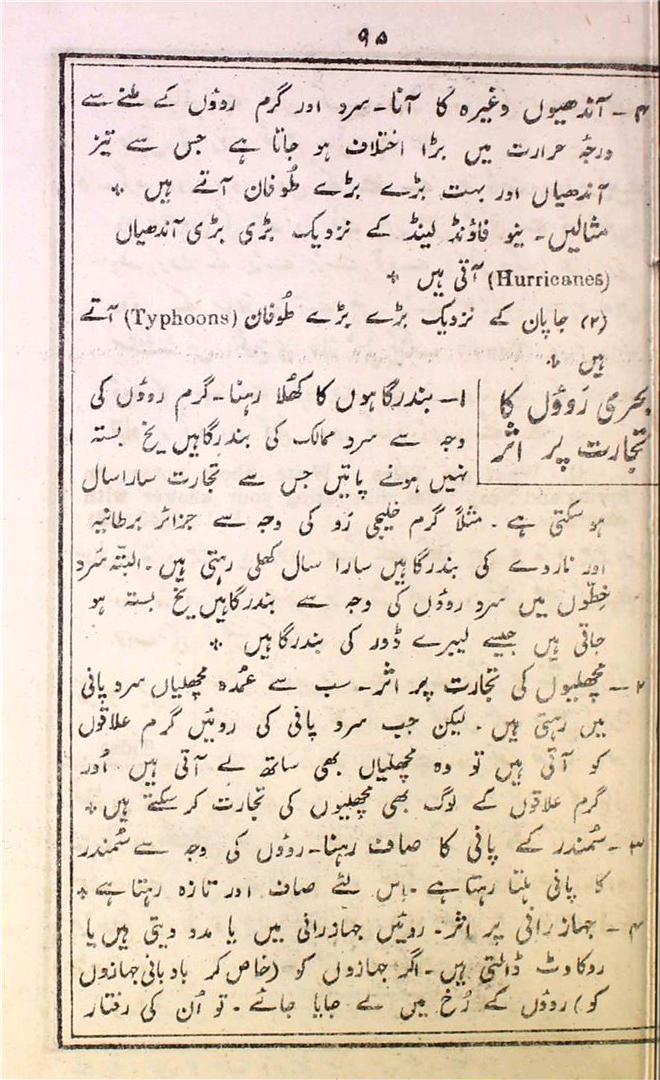 ۹۵
۴ - آندھیوں وغیرہ کا آنا - سرد اور گرم روؤں کے ملنے سے
درجۂ حرارت میں بڑا اختلاف ہو جاتا ہے جس سے تیز
آندھیاں اور بہت بڑے بڑے طُوفان آتے ہیں *
مثالیں - نیو فاؤنڈ لینڈ کے نزدیک بڑی بڑی آندھیاں
(Hurricanes) آتی ہیں *
(۲) جاپان کے نزدیک بڑے بڑے طُوفان (Typhoons) آتے
ہیں *
بحری رَوؤں کا
تجارت پر اثر
۱ - بندرگاہوں کا کھُلا رہنا - گرم روؤں کی
وجہ سے سرد ممالک کی بندرگاہیں یخ بستہ
نہیں ہونے پاتیں جس سے تجارت سارا سال
ہو سکتی ہے - مثلاً گرم خلیجی رَو کی وجہ سے جزائر برطانیہ
اور ناروے کی بندرگاہیں سارا سال کھلی رہتی ہیں - البتّہ سرد
خِطّوں میں سرد روؤں کی وجہ سے بندرگاہیں یخ بستہ ہو
جاتی ہیں جیسے لیبرے ڈور کی بندرگاہیں *
۲ - مچھلیوں کی تجارت پر اثر - سب سے عُمدہ مچھلیاں سرد پانی
میں رہتی ہیں - لیکن جب سرد پانی کی روئیں گرم علاقوں
کو آتی ہیں تو وہ مچھلیاں بھی ساتھ لے آتی ہیں اُور
گرم علاقوں کے لوگ بھی مچھلیوں کی تجارت کر سکتے ہیں *
۳ - سُمندر کے پانی کا صاف رہنا - روؤں کی وجہ سے سُمندر
کا پانی ہلتا رہتا ہے - اِس لئے صاف اور تازہ رہتا ہے *
۴ - جہازرانی پر اثر - روئیں جہازرانی میں یا مدد دیتی ہیں یا
روکاوٹ ڈالتی ہیں - اگر جہازوں کو (خاص کر بادبانی جہازوں
کو) روؤں کے رُخ میں لے جایا جائے - تو اُن کی رفتار